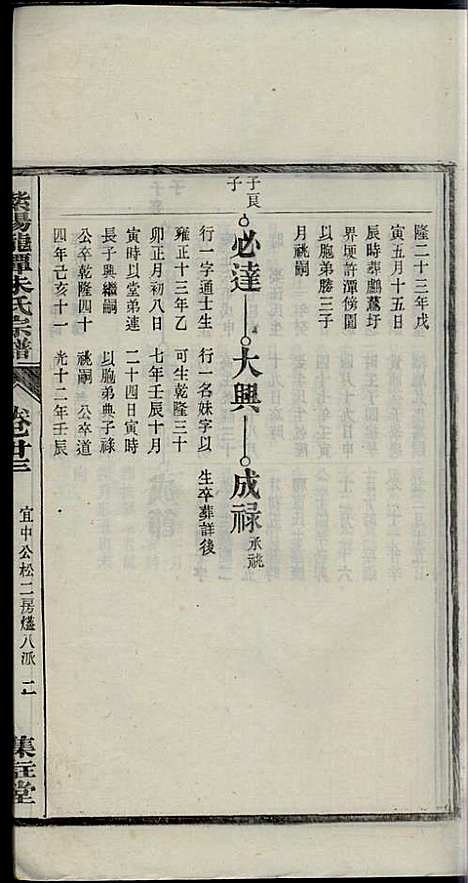 隆二十三年戊
寅五月十五日
辰時葬鸕鶿圩
界埂許潭傍園
以胞弟勝三子
月祧嗣
子良
子
必達 大興 成祿 承祧
行一字通士生
雍正十三年乙
卯正月初八日
寅時以堂弟連
長子興繼嗣
公卒乾隆四十
四年己亥十一
行一名妹字以
可生乾隆三十
七年壬辰十月
二十四日寅時
以胞弟典子祿
祧嗣 公卒道
光十二年壬辰
生卒葬詳後
紫陽龍潭朱氏宗譜
卷之廿三
宜中公松二房燧八派 二
集註堂